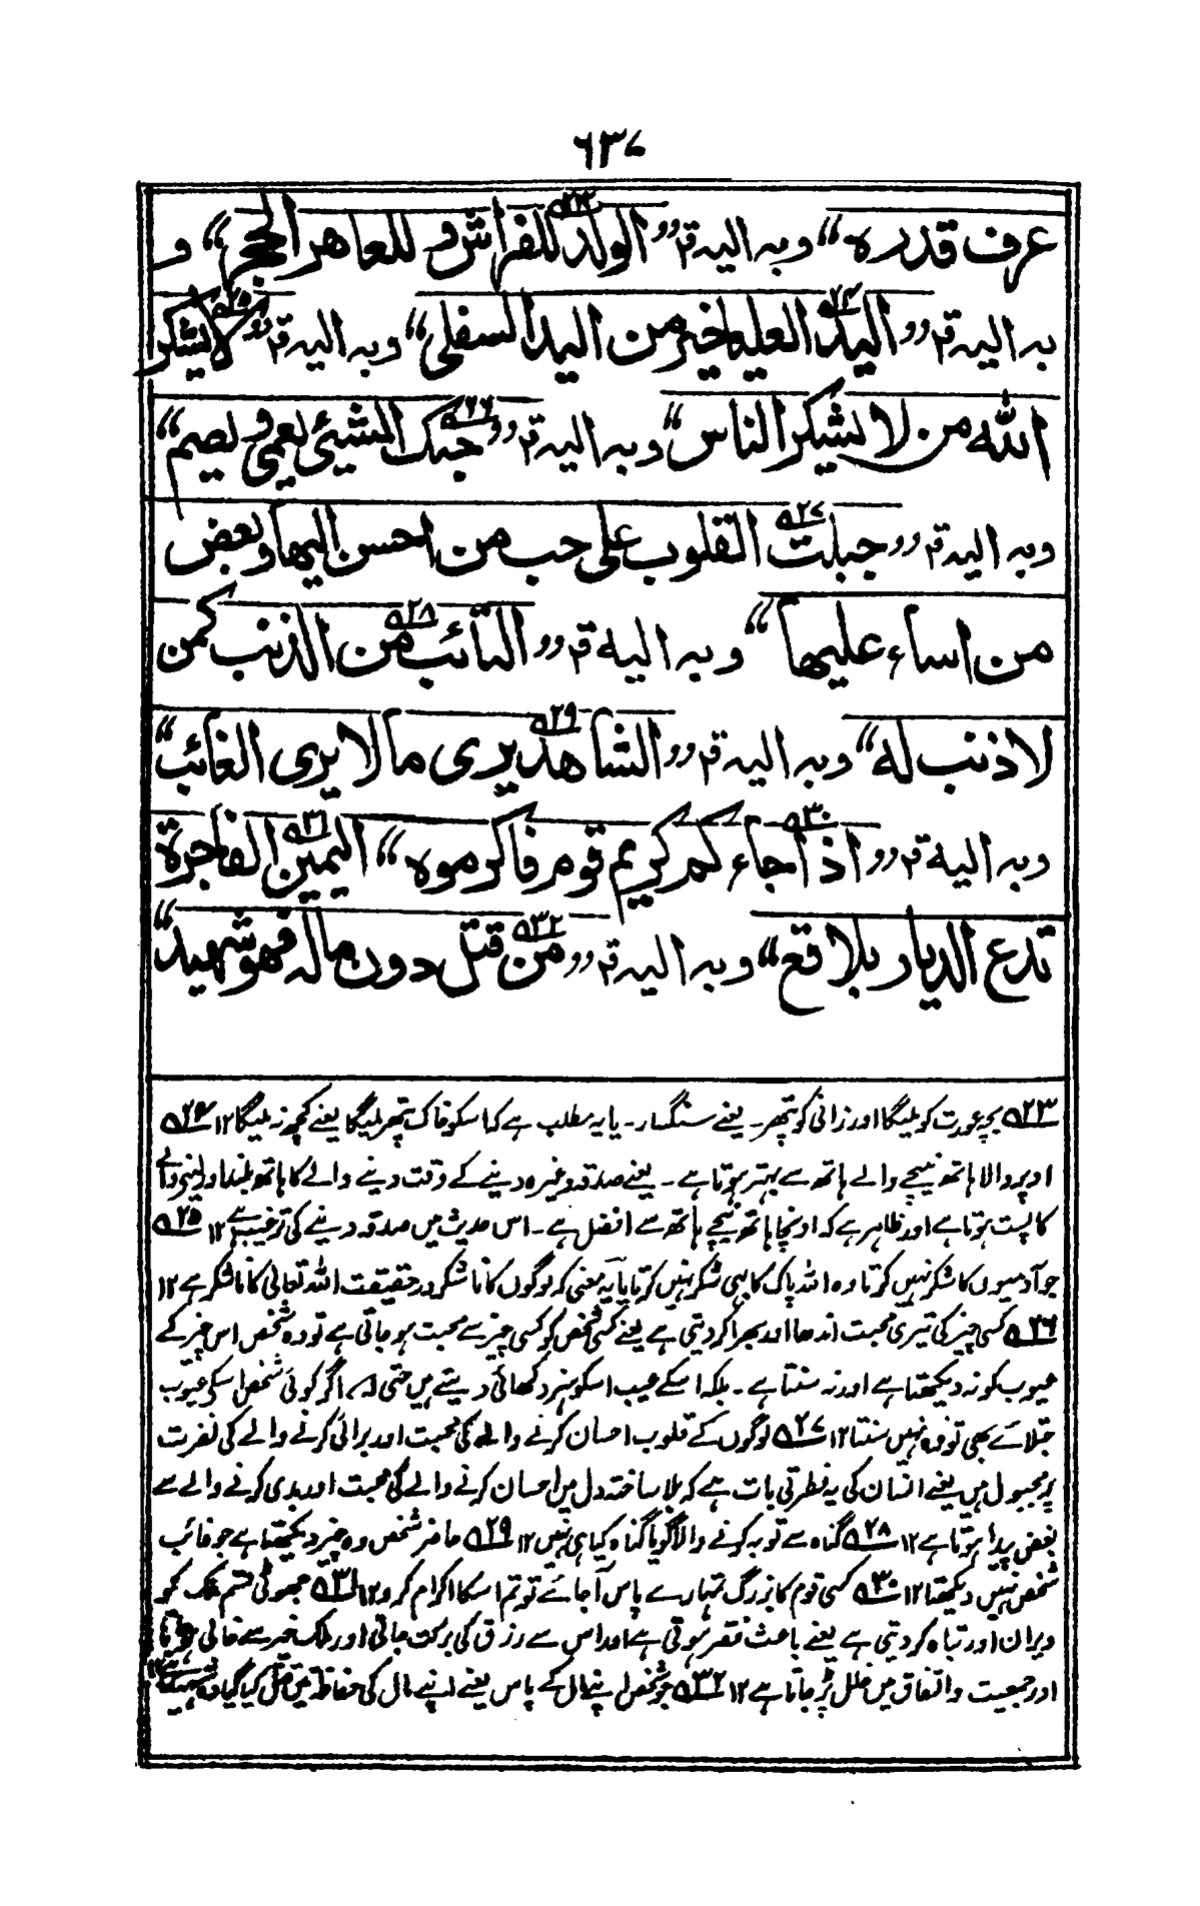 ٦٣٧
عرف قدره“ وبه الیه قم ”الولد۵۲۳ للفراش و للعاهر الحجر“ و
به الیه قم ”الید۵۲۴ العلیا خیر من الید السفلی“ وبه الیه قم ”لا یشکر۵۲۵
الله من لا یشکر الناس“ وبه الیه قم ”حبک۵۲۶ الشیئی یعمی و یصم“
وبه الیه قم ”جبلت۵۲۷ القلوب علی حب من احسن الیها و بعض
من اساء علیها“ وبه الیه قم ”التائب۵۲۸ من الذنب کمن
لا ذنب له“ وبه الیه قم ”الشاهد۵۲۹ یری ما لا یری الغائب“
وبه الیه قم ”اذا۵۳۰ جاء کم کریم قوم فاکرموه“ الیمین۵۳۱ الفاجرة
تدع الدیار بلاقع“ وبه الیه قم ”من۵۳۲ قتل دون ماله فهو شهید“
۵۲۳ بچہ عورت کو ملیگا اور زانی کو پتھر۔ یعنے سنگسار۔ یا یہ مطلب ہے کہ اسکو خاک پتھر ملیگا یعنے کچھ نہ ملیگا ۱۲ ۵۲۴
اوپر والا ہاتھ نیچے والے ہاتھ سے بہتر ہوتا ہے۔ یعنے صدقہ وغیرہ دینے کے وقت دینے والے کا ہاتھ بلند اور لینے والے
کا پست ہوتا ہے اور ظاہر ہے کہ اونچا ہاتھ نیچے ہاتھ سے افضل ہے۔ اس حدیث میں صدقہ دینے کی ترغیب ہے ۱۲ ۵۲۵
جو آدمیوں کا شکر نہیں کرتا وہ اللہ پاک کا بھی شکر نہیں کرتا یا یہ معنی کہ لوگوں کا ناشکر در حقیقت اللہ تعالی کا ناشکر ہے ۱۲
۵۲۶ کسی چیز کی تیری محبت اندھا اور بہرا کر دیتی ہے یعنے کسی شخص کو کسی چیز سے محبت ہو جاتی ہے تو وہ شخص اس چیز کے
عیوب کو نہ دیکھتا ہے اور نہ سنتا ہے۔ بلکہ اسکے عیب اسکو ہنر دکھائی دیتے ہیں حتی کہ اگر کوئی شخص اسکی عیوب
جتلائے بھی تو وہ نہیں سنتا ۱۲ ۵۲۷ لوگوں کے قلوب احسان کرنے والے کی محبت اور برائی کرنے والے کی نفرت
پر مجبول ہیں یعنے انسان کی یہ فطرتی بات ہے کہ بلا ساختہ دل میں احسان کرنے والے کی محبت اور بدی کرنے والے سے
بغض پیدا ہوتا ہے ۱۲ ۵۲۸ گناہ سے توبہ کرنے والا گویا گناہ کیا ہی نہیں ۱۲ ۵۲۹ حاضر شخص وہ چیز دیکھتا ہے جو غائب
شخص نہیں دیکھتا ۱۲ ۵۳۰ کسی قوم کا بزرگ تمہارے پاس آ جائے تو تم اسکا اکرام کرو ۱۲ ۵۳۱ جھوٹی قسم ملک کو
ویران اور تباہ کر دیتی ہے یعنے باعث فقر ہوتی ہے اور اس سے رزق کی برکت جاتی اور ملک خیر سے خالی ہو جاتا
اور جمعیت و اتفاق میں خلل پڑ جاتا ہے ۱۲ ۵۳۲ جو شخص اپنے مال کے پاس یعنے اپنے مال کی حفاظت میں قتل کیا گیا وہ شہید ہے ۱۲